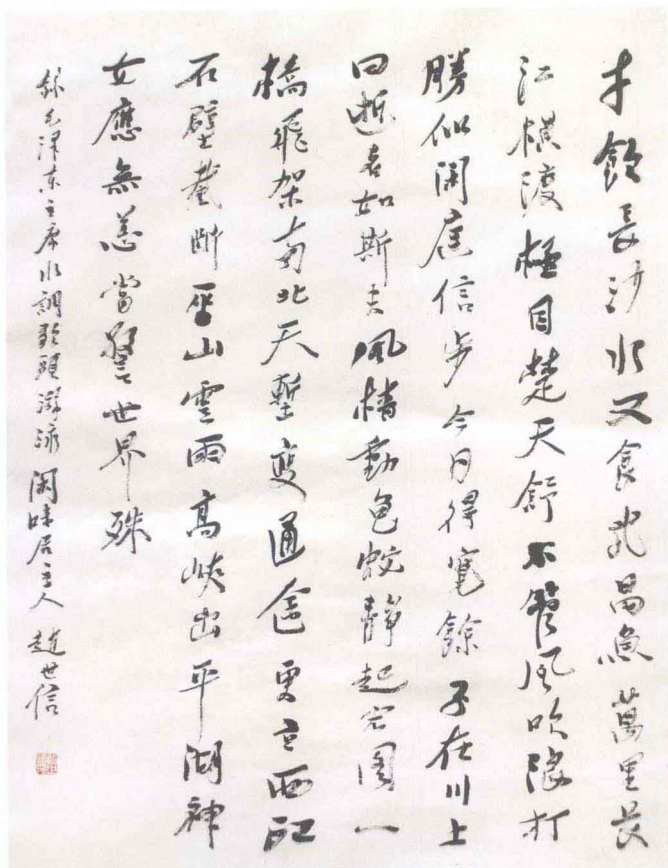 才飲長沙水又食武昌魚萬里長
江橫渡極目楚天舒不管風吹浪打
勝似閑庭信步今日得寬餘子在川上
曰逝者如斯夫風檣動龜蛇靜起宏圖一
橋飛架南北天塹變通途更立西江
石壁截斷巫山雲雨高峽出平湖神
女應無恙當驚世界殊
錄毛澤東主席水調歌頭游泳 閑味居主人 趙世信